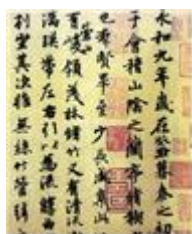 永和九年歲在癸丑暮春之初
于會稽山陰之蘭亭脩禊
也羣賢畢至少長咸集此
有崇山峻領茂林脩竹又有清流
湍暎帶左右引以為流觴曲
列坐其次雖無絲竹管弦